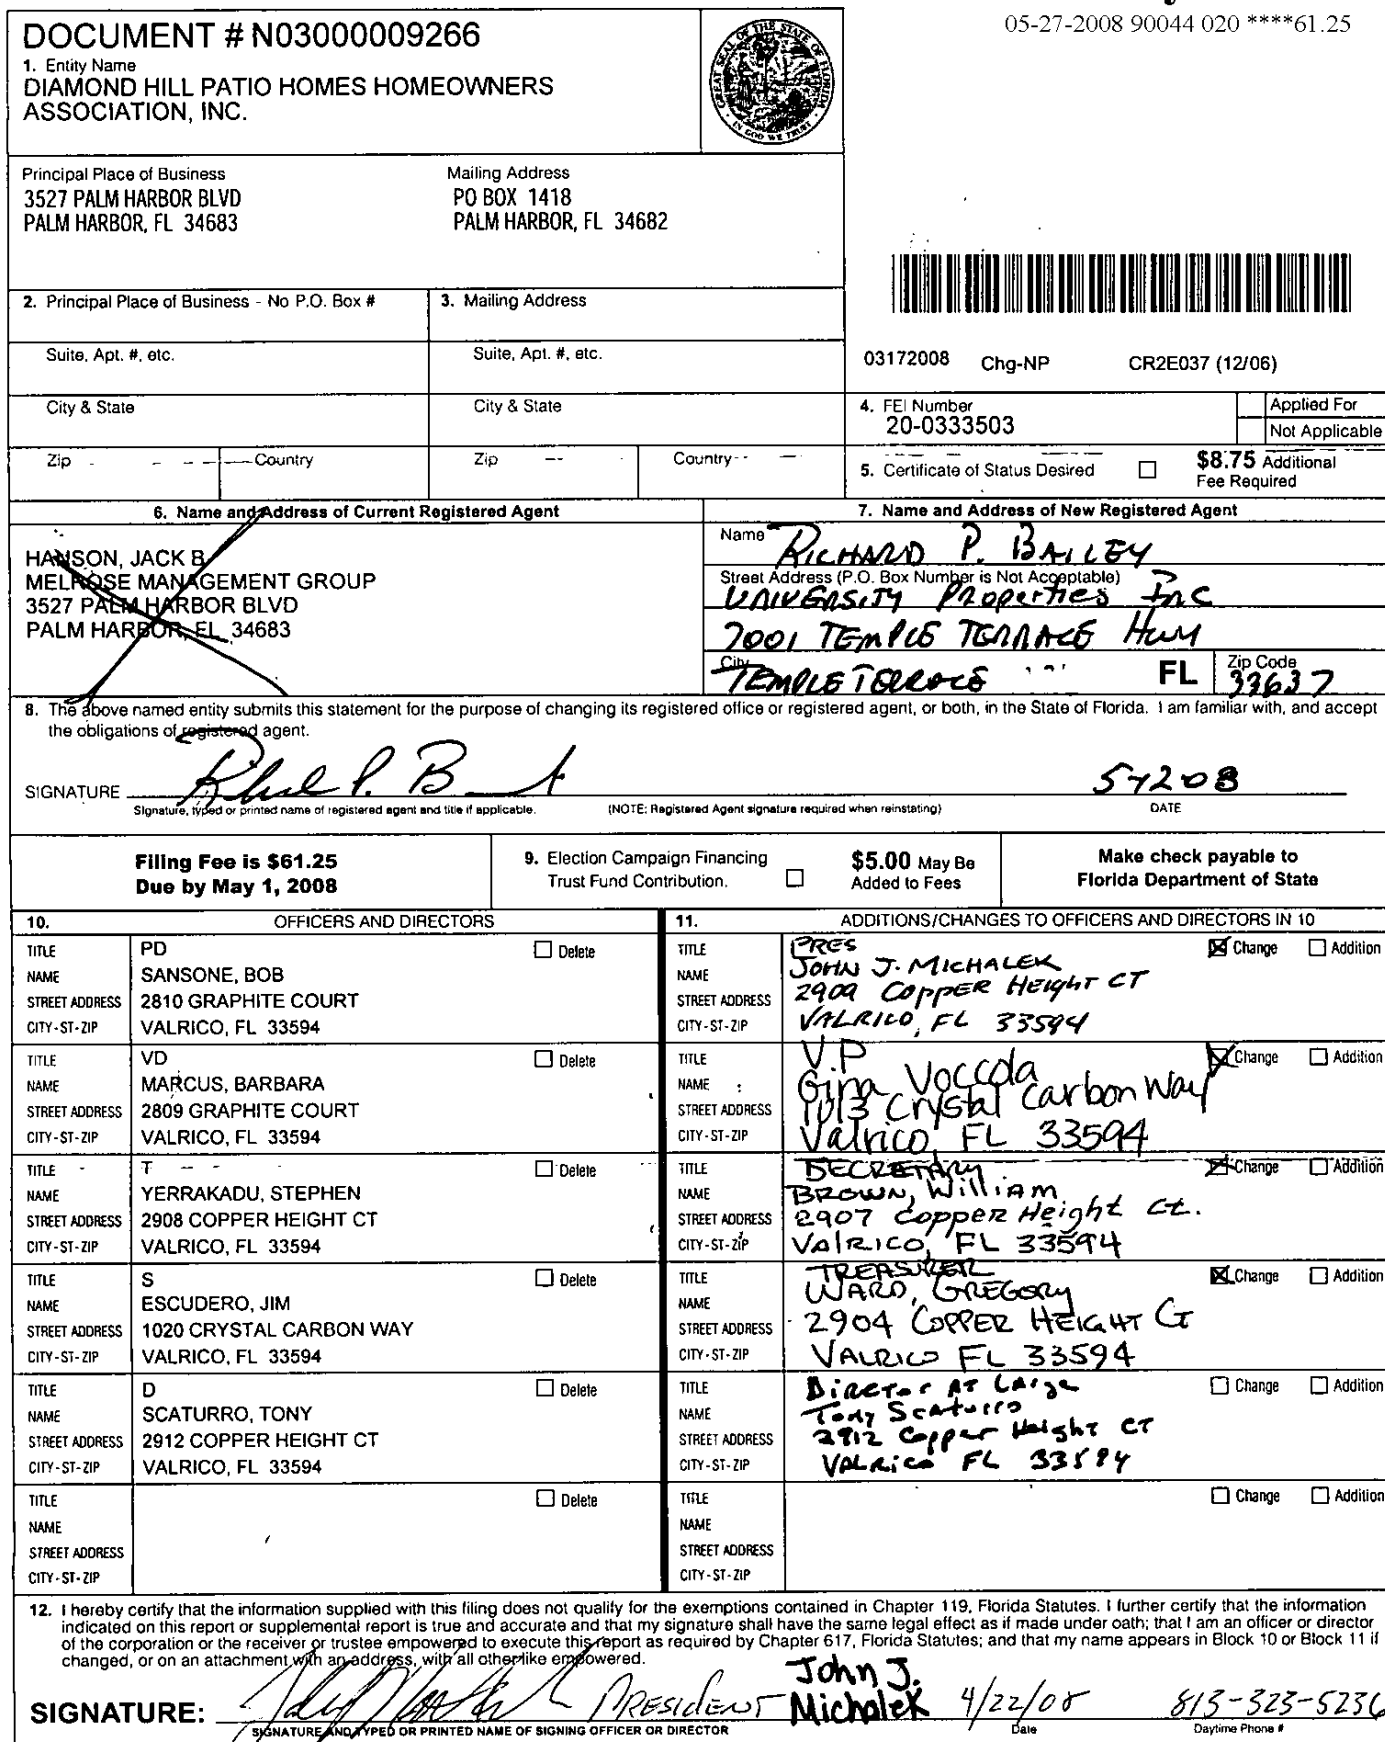 05-27-2008 90044 020 ****61.25
DOCUMENT # N03000009266
1. Entity Name
DIAMOND HILL PATIO HOMES HOMEOWNERS
ASSOCIATION, INC.
GREAT SEAL OF THE STATE OF FLORIDA
IN GOD WE TRUST
Principal Place of Business
3527 PALM HARBOR BLVD
PALM HARBOR, FL 34683
Mailing Address
PO BOX 1418
PALM HARBOR, FL 34682
2. Principal Place of Business - No P.O. Box #
3. Mailing Address
Suite, Apt. #, etc.
Suite, Apt. #, etc.
03172008 Chg-NP CR2E037 (12/06)
City & State
City & State
4. FEI Number
20-0333503
Applied For
Not Applicable
Zip Country
Zip Country
5. Certificate of Status Desired
$8.75 Additional
Fee Required
6. Name and Address of Current Registered Agent
HANSON, JACK B
MELROSE MANAGEMENT GROUP
3527 PALM HARBOR BLVD
PALM HARBOR, FL 34683
7. Name and Address of New Registered Agent
Name RICHARD P. BAILEY
Street Address (P.O. Box Number is Not Acceptable)
UNIVERSITY PROperties Inc
7001 TEMPLE TERRACE Hwy
City TEMPLE TERRACE FL Zip Code 33637
8. The above named entity submits this statement for the purpose of changing its registered office or registered agent, or both, in the State of Florida. I am familiar with, and accept
the obligations of registered agent.
SIGNATURE
Signature, typed or printed name of registered agent and title if applicable. (NOTE: Registered Agent signature required when reinstating) DATE
Filing Fee is $61.25
Due by May 1, 2008
9. Election Campaign Financing
Trust Fund Contribution.
$5.00 May Be
Added to Fees
Make check payable to
Florida Department of State
10. OFFICERS AND DIRECTORS
11. ADDITIONS/CHANGES TO OFFICERS AND DIRECTORS IN 10
TITLE PD Delete
NAME SANSONE, BOB
STREET ADDRESS 2810 GRAPHITE COURT
CITY-ST-ZIP VALRICO, FL 33594
TITLE PRES Change Addition
NAME JOHN J. MICHALEK
STREET ADDRESS 2909 COPPER HEIGHT CT
CITY-ST-ZIP VALRICO, FL 33594
TITLE VD Delete
NAME MARCUS, BARBARA
STREET ADDRESS 2809 GRAPHITE COURT
CITY-ST-ZIP VALRICO, FL 33594
TITLE V.P Change Addition
NAME : Gina Voccola
STREET ADDRESS 1013 Crystal Carbon Way
CITY-ST-ZIP Valrico, FL 33594
TITLE T Delete
NAME YERRAKADU, STEPHEN
STREET ADDRESS 2908 COPPER HEIGHT CT
CITY-ST-ZIP VALRICO, FL 33594
TITLE SECRETARY Change Addition
NAME BROWN, William
STREET ADDRESS 2907 Copper Height Ct.
CITY-ST-ZIP VAlRICO, FL 33594
TITLE S Delete
NAME ESCUDERO, JIM
STREET ADDRESS 1020 CRYSTAL CARBON WAY
CITY-ST-ZIP VALRICO, FL 33594
TITLE TREASURER Change Addition
NAME WARD, GREGORY
STREET ADDRESS 2904 COPPER HEIGHT CT
CITY-ST-ZIP VALRICO FL 33594
TITLE D Delete
NAME SCATURRO, TONY
STREET ADDRESS 2912 COPPER HEIGHT CT
CITY-ST-ZIP VALRICO, FL 33594
TITLE Director AT LArge Change Addition
NAME Tony Scaturro
STREET ADDRESS 2912 Copper Height CT
CITY-ST-ZIP VALRico FL 33594
TITLE Delete
NAME
STREET ADDRESS
CITY-ST-ZIP
TITLE Change Addition
NAME
STREET ADDRESS
CITY-ST-ZIP
12. I hereby certify that the information supplied with this filing does not qualify for the exemptions contained in Chapter 119, Florida Statutes. I further certify that the information
indicated on this report or supplemental report is true and accurate and that my signature shall have the same legal effect as if made under oath; that I am an officer or director
of the corporation or the receiver or trustee empowered to execute this report as required by Chapter 617, Florida Statutes; and that my name appears in Block 10 or Block 11 if
changed, or on an attachment with an address, with all other like empowered.
SIGNATURE: PRESIDENT John J. Michalek 4/22/08 813-323-5236
SIGNATURE AND TYPED OR PRINTED NAME OF SIGNING OFFICER OR DIRECTOR Date Daytime Phone #